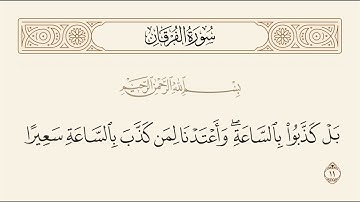 سُورَةُ الْفُرْقَانِ
بِسْمِ اللَّهِ الرَّحْمَٰنِ الرَّحِيمِ
بَلْ كَذَّبُوا۟ بِٱلسَّاعَةِ ۖ وَأَعْتَدْنَا لِمَن كَذَّبَ بِٱلسَّاعَةِ سَعِيرًا
١١